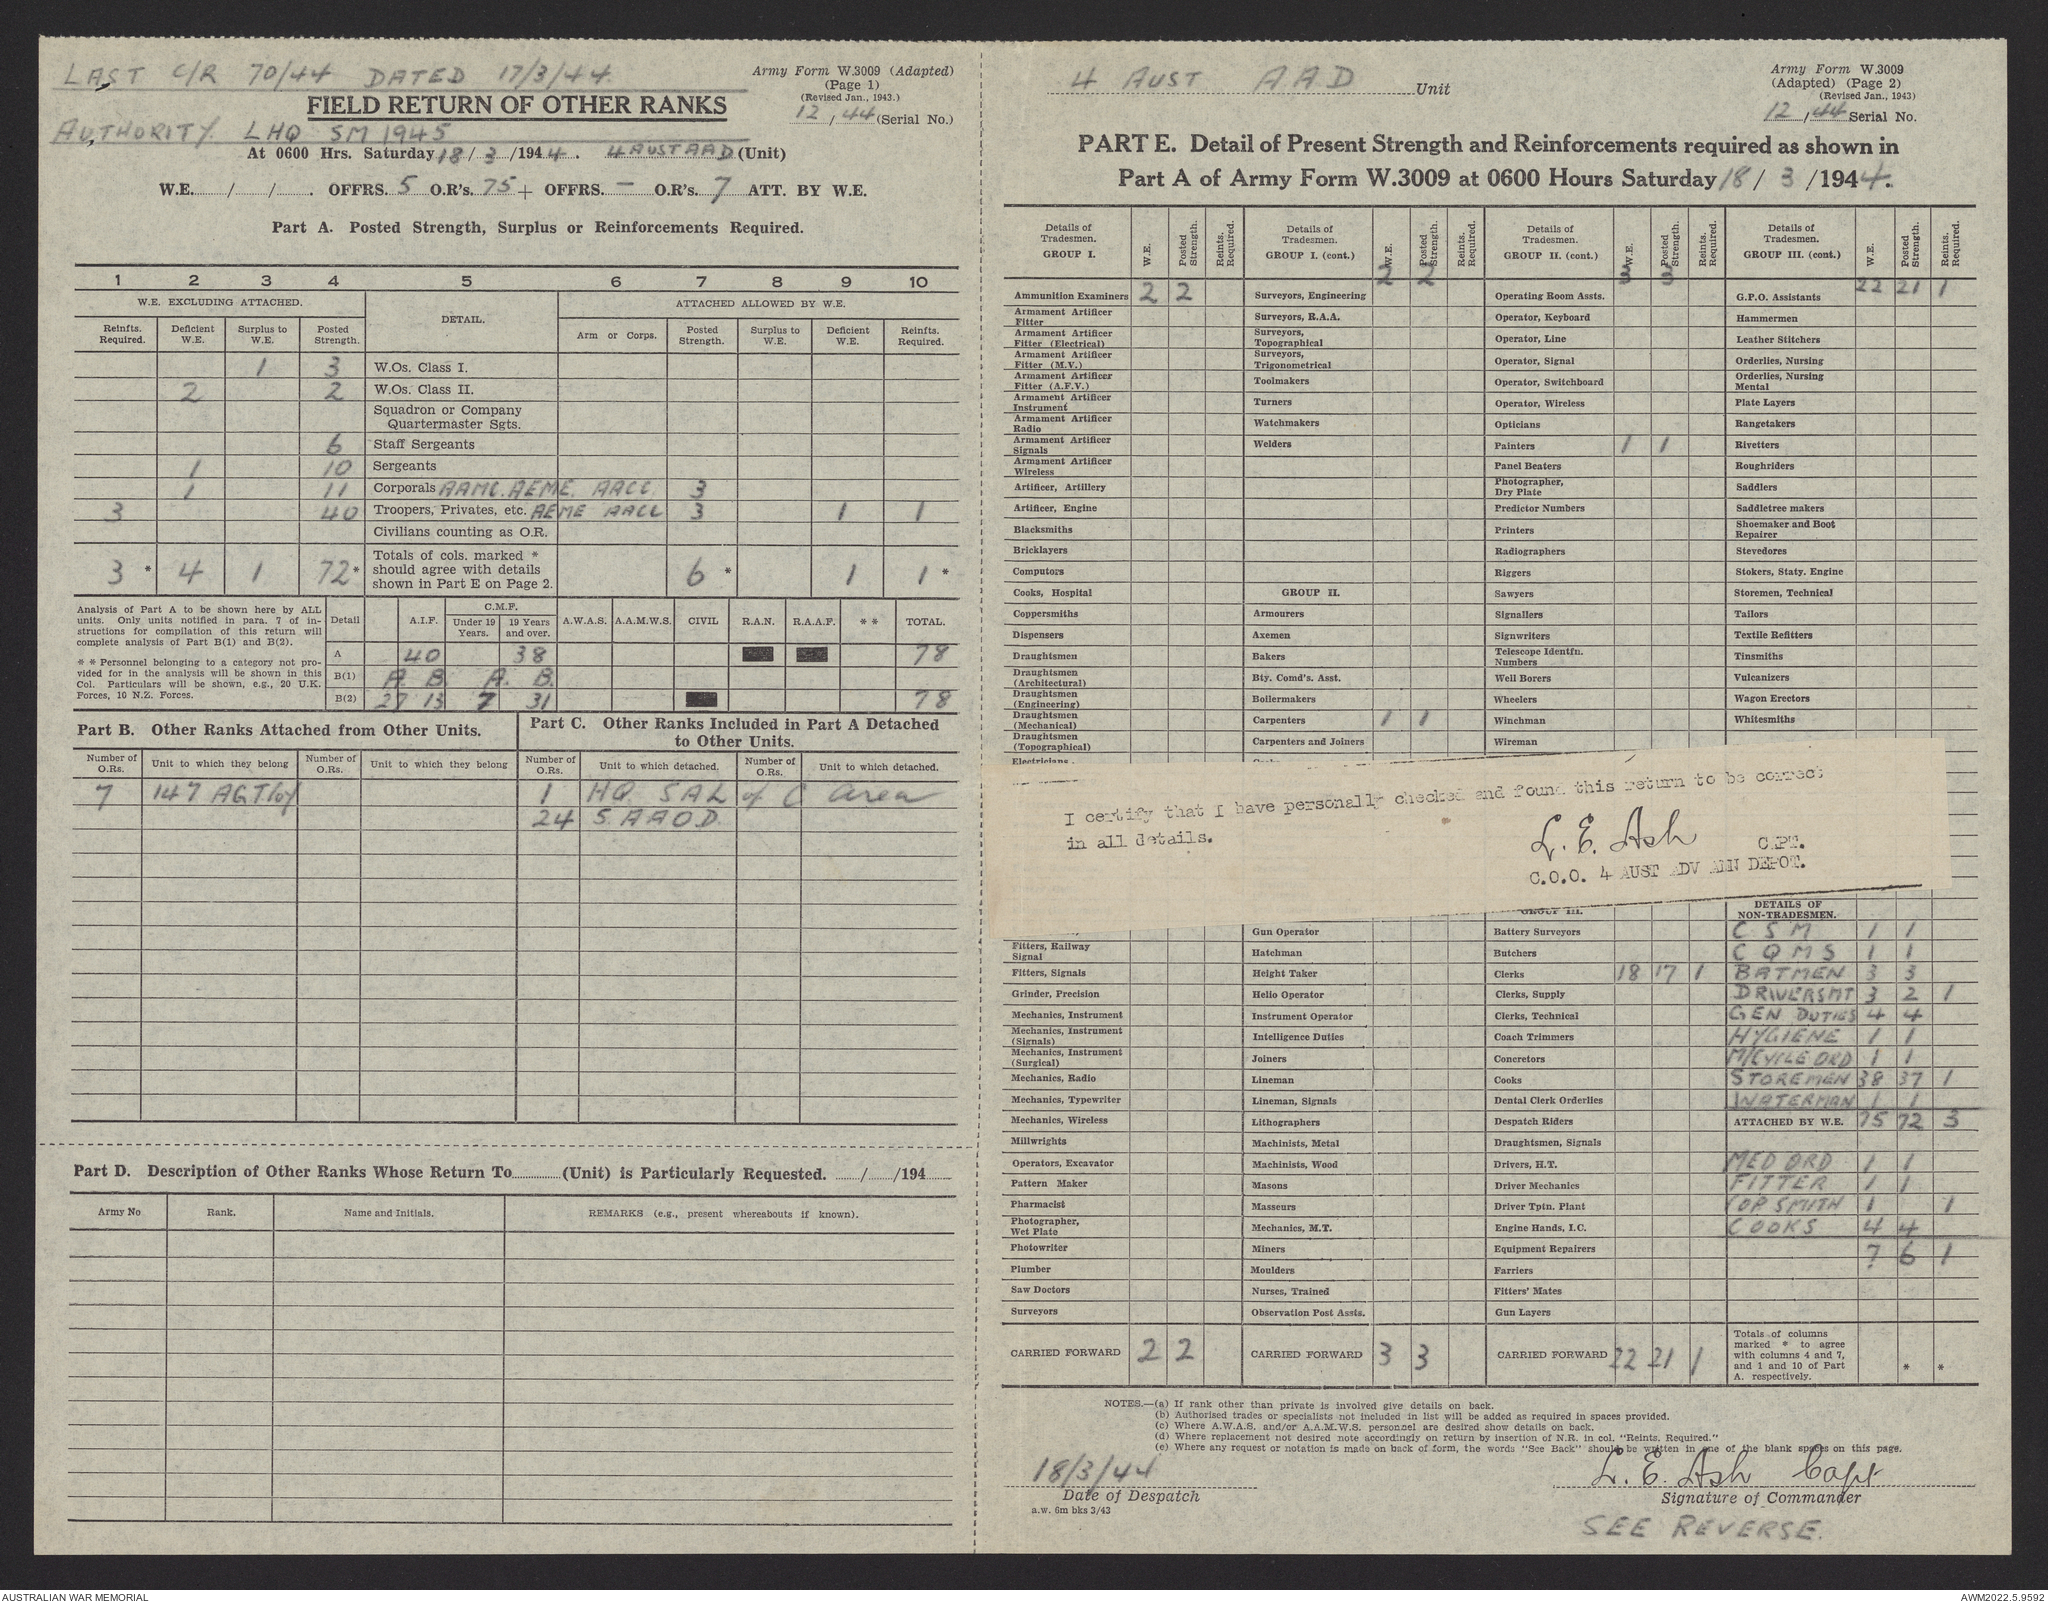 LAST C/R 70/44 DATED 17/3/44.
Army Form W.3009 (Adapted)
(Page 1)
(Revised Jan., 1943.)
12/44 (Serial No.)
FIELD RETURN OF OTHER RANKS
AUTHORITY. LHQ SM 1945
At 0600 Hrs. Saturday 18/3/1944. 4 AUST AAD (Unit)
W.E. / / . OFFRS. 5 O.R's. 75 + OFFRS. — O.R's. 7 ATT. BY W.E.
Part A. Posted Strength, Surplus or Reinforcements Required.
1 2 3 4 5 6 7 8 9 10
W.E. EXCLUDING ATTACHED. DETAIL. ATTACHED ALLOWED BY W.E.
Reinfts. Required. Deficient W.E. Surplus to W.E. Posted Strength. Arm or Corps. Posted Strength. Surplus to W.E. Deficient W.E. Reinfts. Required.
1 3 W.Os. Class I.
2 2 W.Os. Class II.
Squadron or Company Quartermaster Sgts.
6 Staff Sergeants
1 10 Sergeants
1 11 Corporals AAMC. AEME. AACC. 3
3 40 Troopers, Privates, etc. AEME AACC 3 1 1
Civilians counting as O.R.
3 * 4 1 72* Totals of cols. marked * should agree with details shown in Part E on Page 2. 6 * 1 1 *
Analysis of Part A to be shown here by ALL units. Only units notified in para. 7 of instructions for compilation of this return will complete analysis of Part B(1) and B(2).
* * Personnel belonging to a category not provided for in the analysis will be shown in this Col. Particulars will be shown, e.g., 20 U.K. Forces, 10 N.Z. Forces.
Detail A.I.F. C.M.F. Under 19 Years. 19 Years and over. A.W.A.S. A.A.M.W.S. CIVIL R.A.N. R.A.A.F. * * TOTAL.
A 40 38 78
B(1) A. B. A. B.
B(2) 27 13 7 31 78
Part B. Other Ranks Attached from Other Units.
Part C. Other Ranks Included in Part A Detached to Other Units.
Number of O.Rs. Unit to which they belong Number of O.Rs. Unit to which they belong Number of O.Rs. Unit to which detached. Number of O.Rs. Unit to which detached.
7 147 AGT Coy 1 HQ. SAL of C area
24 5 AAOD.
Part D. Description of Other Ranks Whose Return To (Unit) is Particularly Requested. / /194
Army No Rank. Name and Initials. REMARKS (e.g., present whereabouts if known).
4 AUST AAD Unit
Army Form W.3009
(Adapted) (Page 2)
(Revised Jan., 1943)
12/44 Serial No.
PART E. Detail of Present Strength and Reinforcements required as shown in
Part A of Army Form W.3009 at 0600 Hours Saturday 18/3/1944.
Details of Tradesmen. GROUP I. W.E. Posted Strength. Reints. Required.
Ammunition Examiners 2 2
Armament Artificer Fitter
Armament Artificer Fitter (Electrical)
Armament Artificer Fitter (M.V.)
Armament Artificer Fitter (A.F.V.)
Armament Artificer Instrument
Armament Artificer Radio
Armament Artificer Signals
Armament Artificer Wireless
Artificer, Artillery
Artificer, Engine
Blacksmiths
Bricklayers
Computors
Cooks, Hospital
Coppersmiths
Dispensers
Draughtsmen
Draughtsmen (Architectural)
Draughtsmen (Engineering)
Draughtsmen (Mechanical)
Draughtsmen (Topographical)
Electricians
Fitters, Railway Signal
Fitters, Signals
Grinder, Precision
Mechanics, Instrument
Mechanics, Instrument (Signals)
Mechanics, Instrument (Surgical)
Mechanics, Radio
Mechanics, Typewriter
Mechanics, Wireless
Millwrights
Operators, Excavator
Pattern Maker
Pharmacist
Photographer, Wet Plate
Photowriter
Plumber
Saw Doctors
Surveyors
CARRIED FORWARD 2 2
Details of Tradesmen. GROUP I. (cont.) W.E. Posted Strength. Reints. Required.
2 2
Surveyors, Engineering
Surveyors, R.A.A.
Surveyors, Topographical
Surveyors, Trigonometrical
Toolmakers
Turners
Watchmakers
Welders
GROUP II.
Armourers
Axemen
Bakers
Bty. Comd's. Asst.
Boilermakers
Carpenters 1 1
Carpenters and Joiners
Gun Operator
Hatchman
Height Taker
Helio Operator
Instrument Operator
Intelligence Duties
Joiners
Lineman
Lineman, Signals
Lithographers
Machinists, Metal
Machinists, Wood
Masons
Masseurs
Mechanics, M.T.
Miners
Moulders
Nurses, Trained
Observation Post Assts.
CARRIED FORWARD 3 3
Details of Tradesmen. GROUP II. (cont.) W.E. Posted Strength. Reints. Required.
3 3
Operating Room Assts.
Operator, Keyboard
Operator, Line
Operator, Signal
Operator, Switchboard
Operator, Wireless
Opticians
Painters 1 1
Panel Beaters
Photographer, Dry Plate
Predictor Numbers
Printers
Radiographers
Riggers
Sawyers
Signallers
Signwriters
Telescope Identfn. Numbers
Well Borers
Wheelers
Winchman
Wireman
GROUP III.
Battery Surveyors
Butchers
Clerks 18 17 1
Clerks, Supply
Clerks, Technical
Coach Trimmers
Concretors
Cooks
Dental Clerk Orderlies
Despatch Riders
Draughtsmen, Signals
Drivers, H.T.
Driver Mechanics
Driver Tptn. Plant
Engine Hands, I.C.
Equipment Repairers
Farriers
Fitters' Mates
Gun Layers
CARRIED FORWARD 22 21 1
Details of Tradesmen. GROUP III. (cont.) W.E. Posted Strength. Reints. Required.
22 21 1
G.P.O. Assistants
Hammermen
Leather Stitchers
Orderlies, Nursing
Orderlies, Nursing Mental
Plate Layers
Rangetakers
Rivetters
Roughriders
Saddlers
Saddletree makers
Shoemaker and Boot Repairer
Stevedores
Stokers, Staty. Engine
Storemen, Technical
Tailors
Textile Refitters
Tinsmiths
Vulcanizers
Wagon Erectors
Whitesmiths
DETAILS OF NON-TRADESMEN.
C S M 1 1
C Q M S 1 1
BATMEN 3 3
DRIVERS MT 3 2 1
GEN DUTIES 4 4
HYGIENE 1 1
M/CYCLE ORD 1 1
STOREMEN 38 37 1
WATERMAN 1 1
ATTACHED BY W.E. 75 72 3
MED ORD 1 1
FITTER 1 1
COPSMITH 1 1
COOKS 4 4
7 6 1
Totals of columns marked * to agree with columns 4 and 7, and 1 and 10 of Part A. respectively. * *
I certify that I have personally checked and found this return to be correct
in all details.
L. E. Ash CAPT.
C.O.O. 4 AUST ADV AMN DEPOT.
NOTES.—(a) If rank other than private is involved give details on back.
(b) Authorised trades or specialists not included in list will be added as required in spaces provided.
(c) Where A.W.A.S. and/or A.A.M.W.S. personnel are desired show details on back.
(d) Where replacement not desired note accordingly on return by insertion of N.R. in col. "Reints. Required."
(e) Where any request or notation is made on back of form, the words "See Back" should be written in one of the blank spaces on this page.
18/3/44
Date of Despatch
a.w. 6m bks 3/43
L. E. Ash Capt
Signature of Commander
SEE REVERSE.
AUSTRALIAN WAR MEMORIAL
AWM2022.5.9592